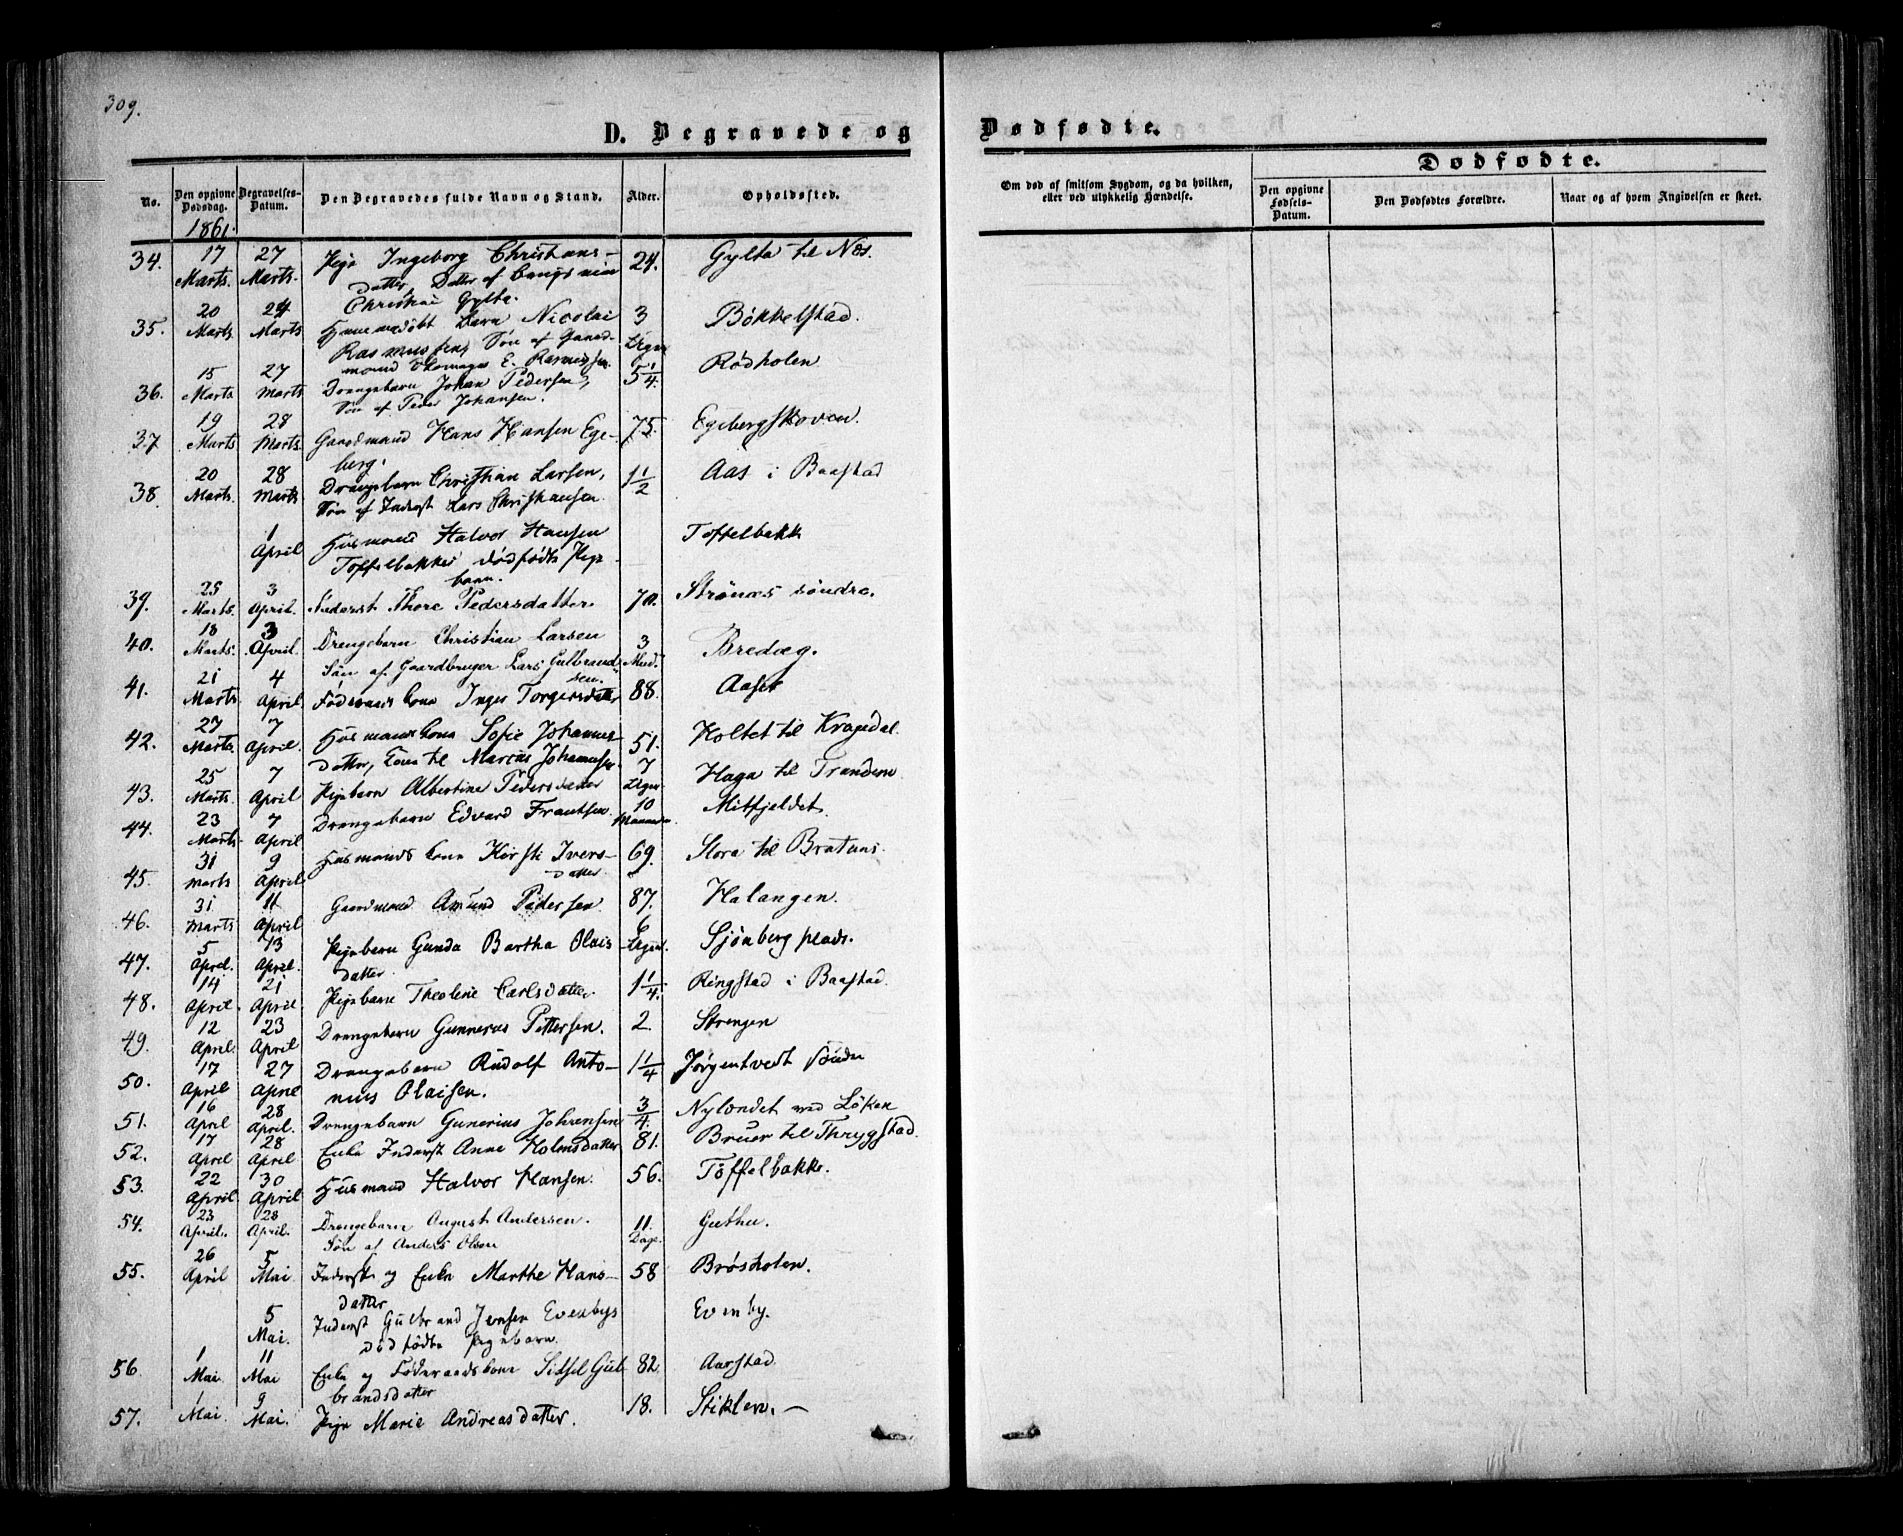 309.
D. Begravede og
Dødfødte.
No.
Den opgivne Dødsdag.
Begravelses-Datum.
Den Begravedes fulde Navn og Stand.
Alder.
Opholdssted.
Om død af smitsom Sygdom, og da hvilken, eller ved ulykkelig Hændelse.
Dødfødte.
Den opgivne Fødsels-Datum.
Den Dødfødtes Forældre.
Naar og af hvem Angivelsen er skeet.
1861.
34. 17 Marts. 27 Marts. Pige Ingeborg Christians- 24. Gylta til Næs.
datter, Datter af
Christian Gylte.
35. 20 Marts 24 Marts Hjemmedøbt Barn Nicolai 3 Uger Bøkkelstad.
Rasmussen, Søn af Gaard-
mand Thomas E. Rasmussen.
36. 15 Marts 27 Marts Drengebarn Johan Pedersen, 5 1/4. Rødholen
Søn af Peder Johansen.
37 19 Marts 28 Marts. Gaardmand Hans Hansen Ege- 75. Egebergskoven.
berg.
38. 20 Marts. 28 Marts Drengebarn Christian Larsen, 1 1/2 Aas i Baastad
Søn af Inderst Lars Christiansen.
1 April Husmand Halvor Hansen Toffelbakk
Toffelbakkes dødfødte Pige-
barn.
39. 25 Marts. 3 April. Inderst Thore Pedersdatter. 70. Strønæs søndre.
40. 18 Marts. 3 April. Drengebarn Christian Larsen 3 Mnd. Bredæg.
Søn af Gaardbruger Lars Gulbrand-
sen.
41. 21 Marts. 4 April. Føderaads Kone Inger Torgersdatter 88. Aaser
42. 27 Marts. 7 April. Husmands Kone Sofie Johannes- 51. Holtet til Kragedal.
datter, Kone til Marcus Johannesen.
43. 25 Marts. 7 April Pigebarn Albertine Pedersdatter 7 Uger Haga til Trandem
44. 23 Marts. 7 April Drengebarn Edvard Frantsen. 10 Maaneder. Mitfjeldet.
45. 31 Marts 9 April Husmands Kone Kirsti Ivers- 69. Slora til
datter.
46. 31 Marts 11 April Gaardmand Amund Pedersen. 87. Halangen.
47. 5 April. 13 April. Pigebarn Gunda Bartha Olais- 6 Uger. Sjønberg plads.
datter.
48. 14 April. 21 April Pigebarn Theoline Carlsdatter. 1 1/4. Ringstad i Baastad.
49. 12 April. 23 April Drengebarn Gunnerus Pettersen. 2. Strengen
50. 17 April 27 April Drengebarn Rudolf Anto- 1 1/4 Jørgentvedt Søndre
nius Olaisen.
51. 16 April 28 April. Drengebarn Gunerius Johrensen 3/4. Nylændet ved Løken
52. 17 April 28 April Enke Inderst Anne Holmsdatter 81. Bruer til Thrygstad.
53. 22 April. 30 April Husmand Halvor Hansen. 56. Toffelbakke.
54. 23 April. 28 April. Drengebarn August Andersen. 11. Dage. Guthu.
Søn af Anders Olsen
55. 26 April 5 Mai. Inderst og Enke Marthe Hans- 58 Brøsholen.
datter
5 Mai. Inderst Gulbrand Jensen Evenbys Evenby.
Dødfødte Pigebarn.
56. 1 Mai. 11 Mai Enke og Føderaadskone Sidsel Gul- 82. Aarstad.
brandsdatter
57. 1 Mai. 9 Mai. Pige Marie Andreasdatter. 18. Stiklen. —